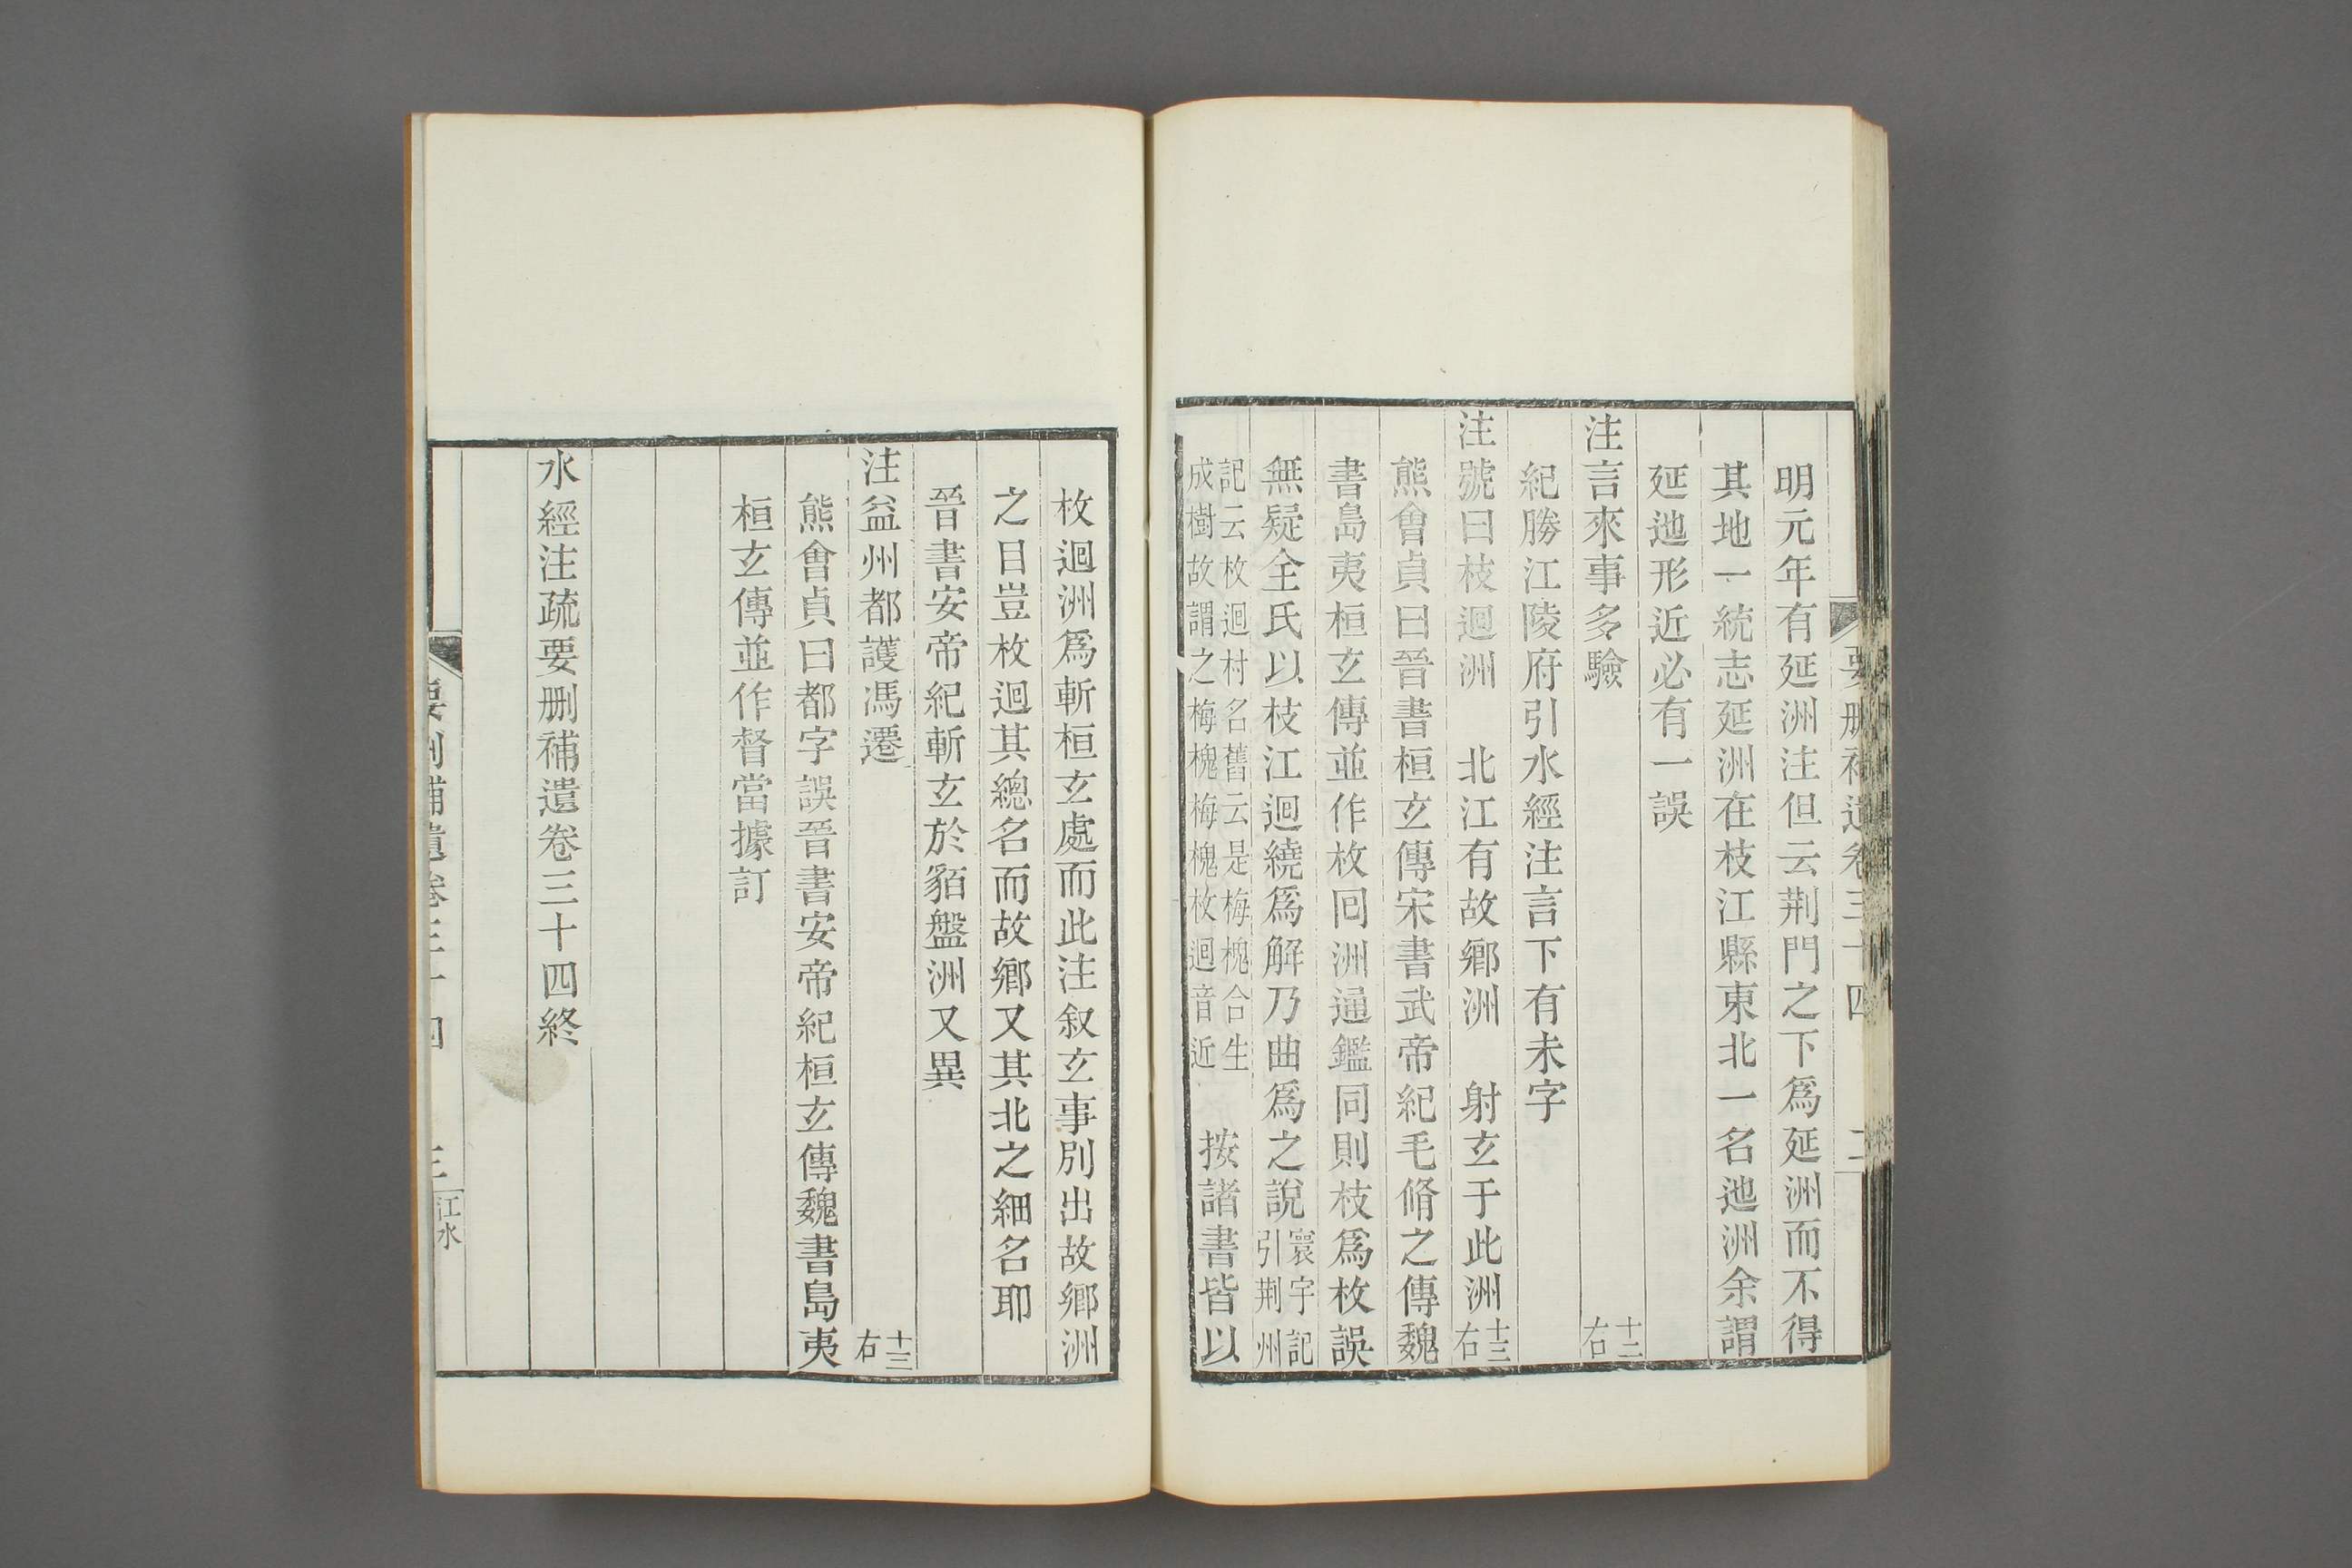 要刪補遺卷三十四 二
明元年有延洲注但云荆門之下爲延洲而不得
其地一統志延洲在枝江縣東北一名迆洲余謂
延迆形近必有一誤
注言來事多驗 十二右
紀勝江陵府引水經注言下有未字
注號曰枝迴洲 北江有故鄉洲 射玄于此洲 十三右
熊會貞曰晉書桓玄傳宋書武帝紀毛脩之傳魏
書島夷桓玄傳並作枚囘洲通鑑同則枝爲枚誤
無疑全氏以枝江迴繞爲解乃曲爲之說 寰宇記引荆州
記云枚迴村名舊云是梅槐合生成樹故謂之梅槐梅槐枚迴音近 按諸書皆以
枚迴洲爲斬桓玄處而此注叙玄事別出故鄉洲
之目豈枚迴其總名而故鄉又其北之細名耶
晉書安帝紀斬玄於貊盤洲又異
注益州都護馮遷 十三右
熊會貞曰都字誤晉書安帝紀桓玄傳魏書島夷
桓玄傳並作督當據訂
水經注疏要刪補遺卷三十四終
要刪補遺卷三十四 三 江水